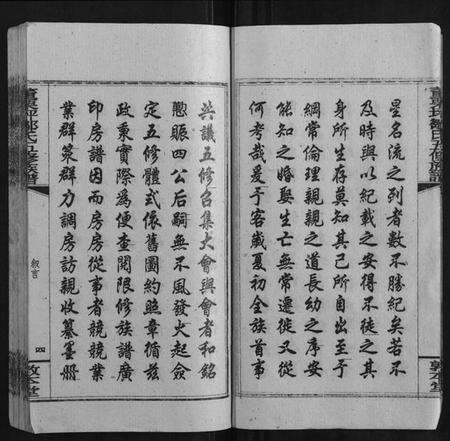 星名流之列者數不勝紀矣若不
及時與以紀載之安得不徒之其
身所生存莫知其己所自出至于
綱常倫理親親之道長幼之序安
能知之婚娶生亡無常遷徙又從
何考哉爰于客歲夏初全族首事
共議五修召集大會與會者和銘
懲賑四公后嗣無不風發火起僉
定五修體式依舊圖約照章循茲
政秉實際為便查閱限修族譜廣
印房譜因而房房從事者競競業
業群策群力調房訪親收纂墨冊
敘言
四
敦本堂
敦本堂